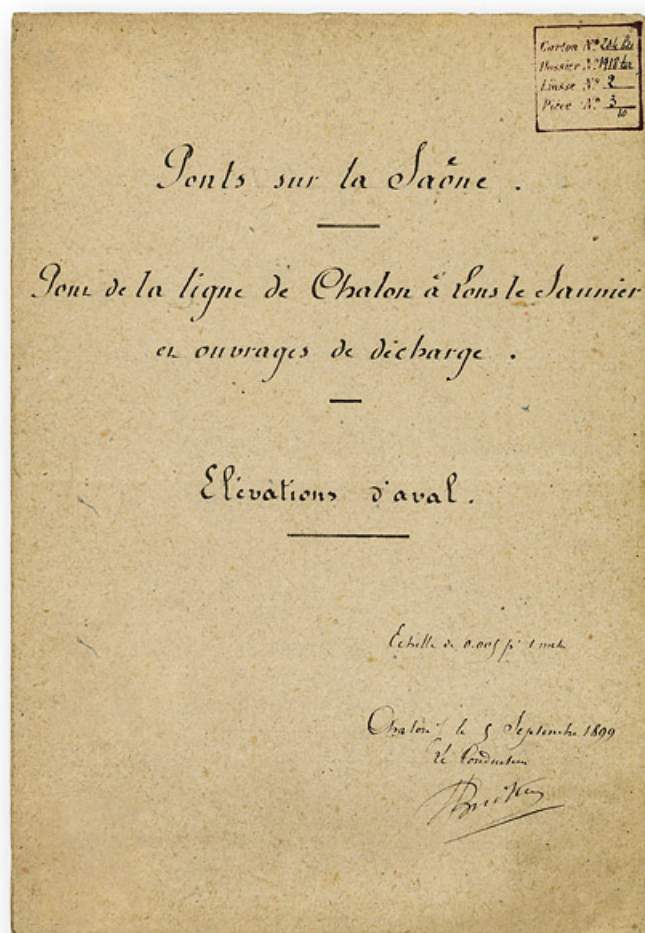 Carton N°
Dossier N° 1918 ter
Liasse N° 2
Pièce N° 3
10
Ponts sur la Saône.
Pont de la ligne de Chalon à Lons le Saunier
et ouvrages de décharge.
Elévations d'aval.
Echelle de 0.005 pr 1 metre
Chalon, le 5 Septembre 1899
Le Conducteur